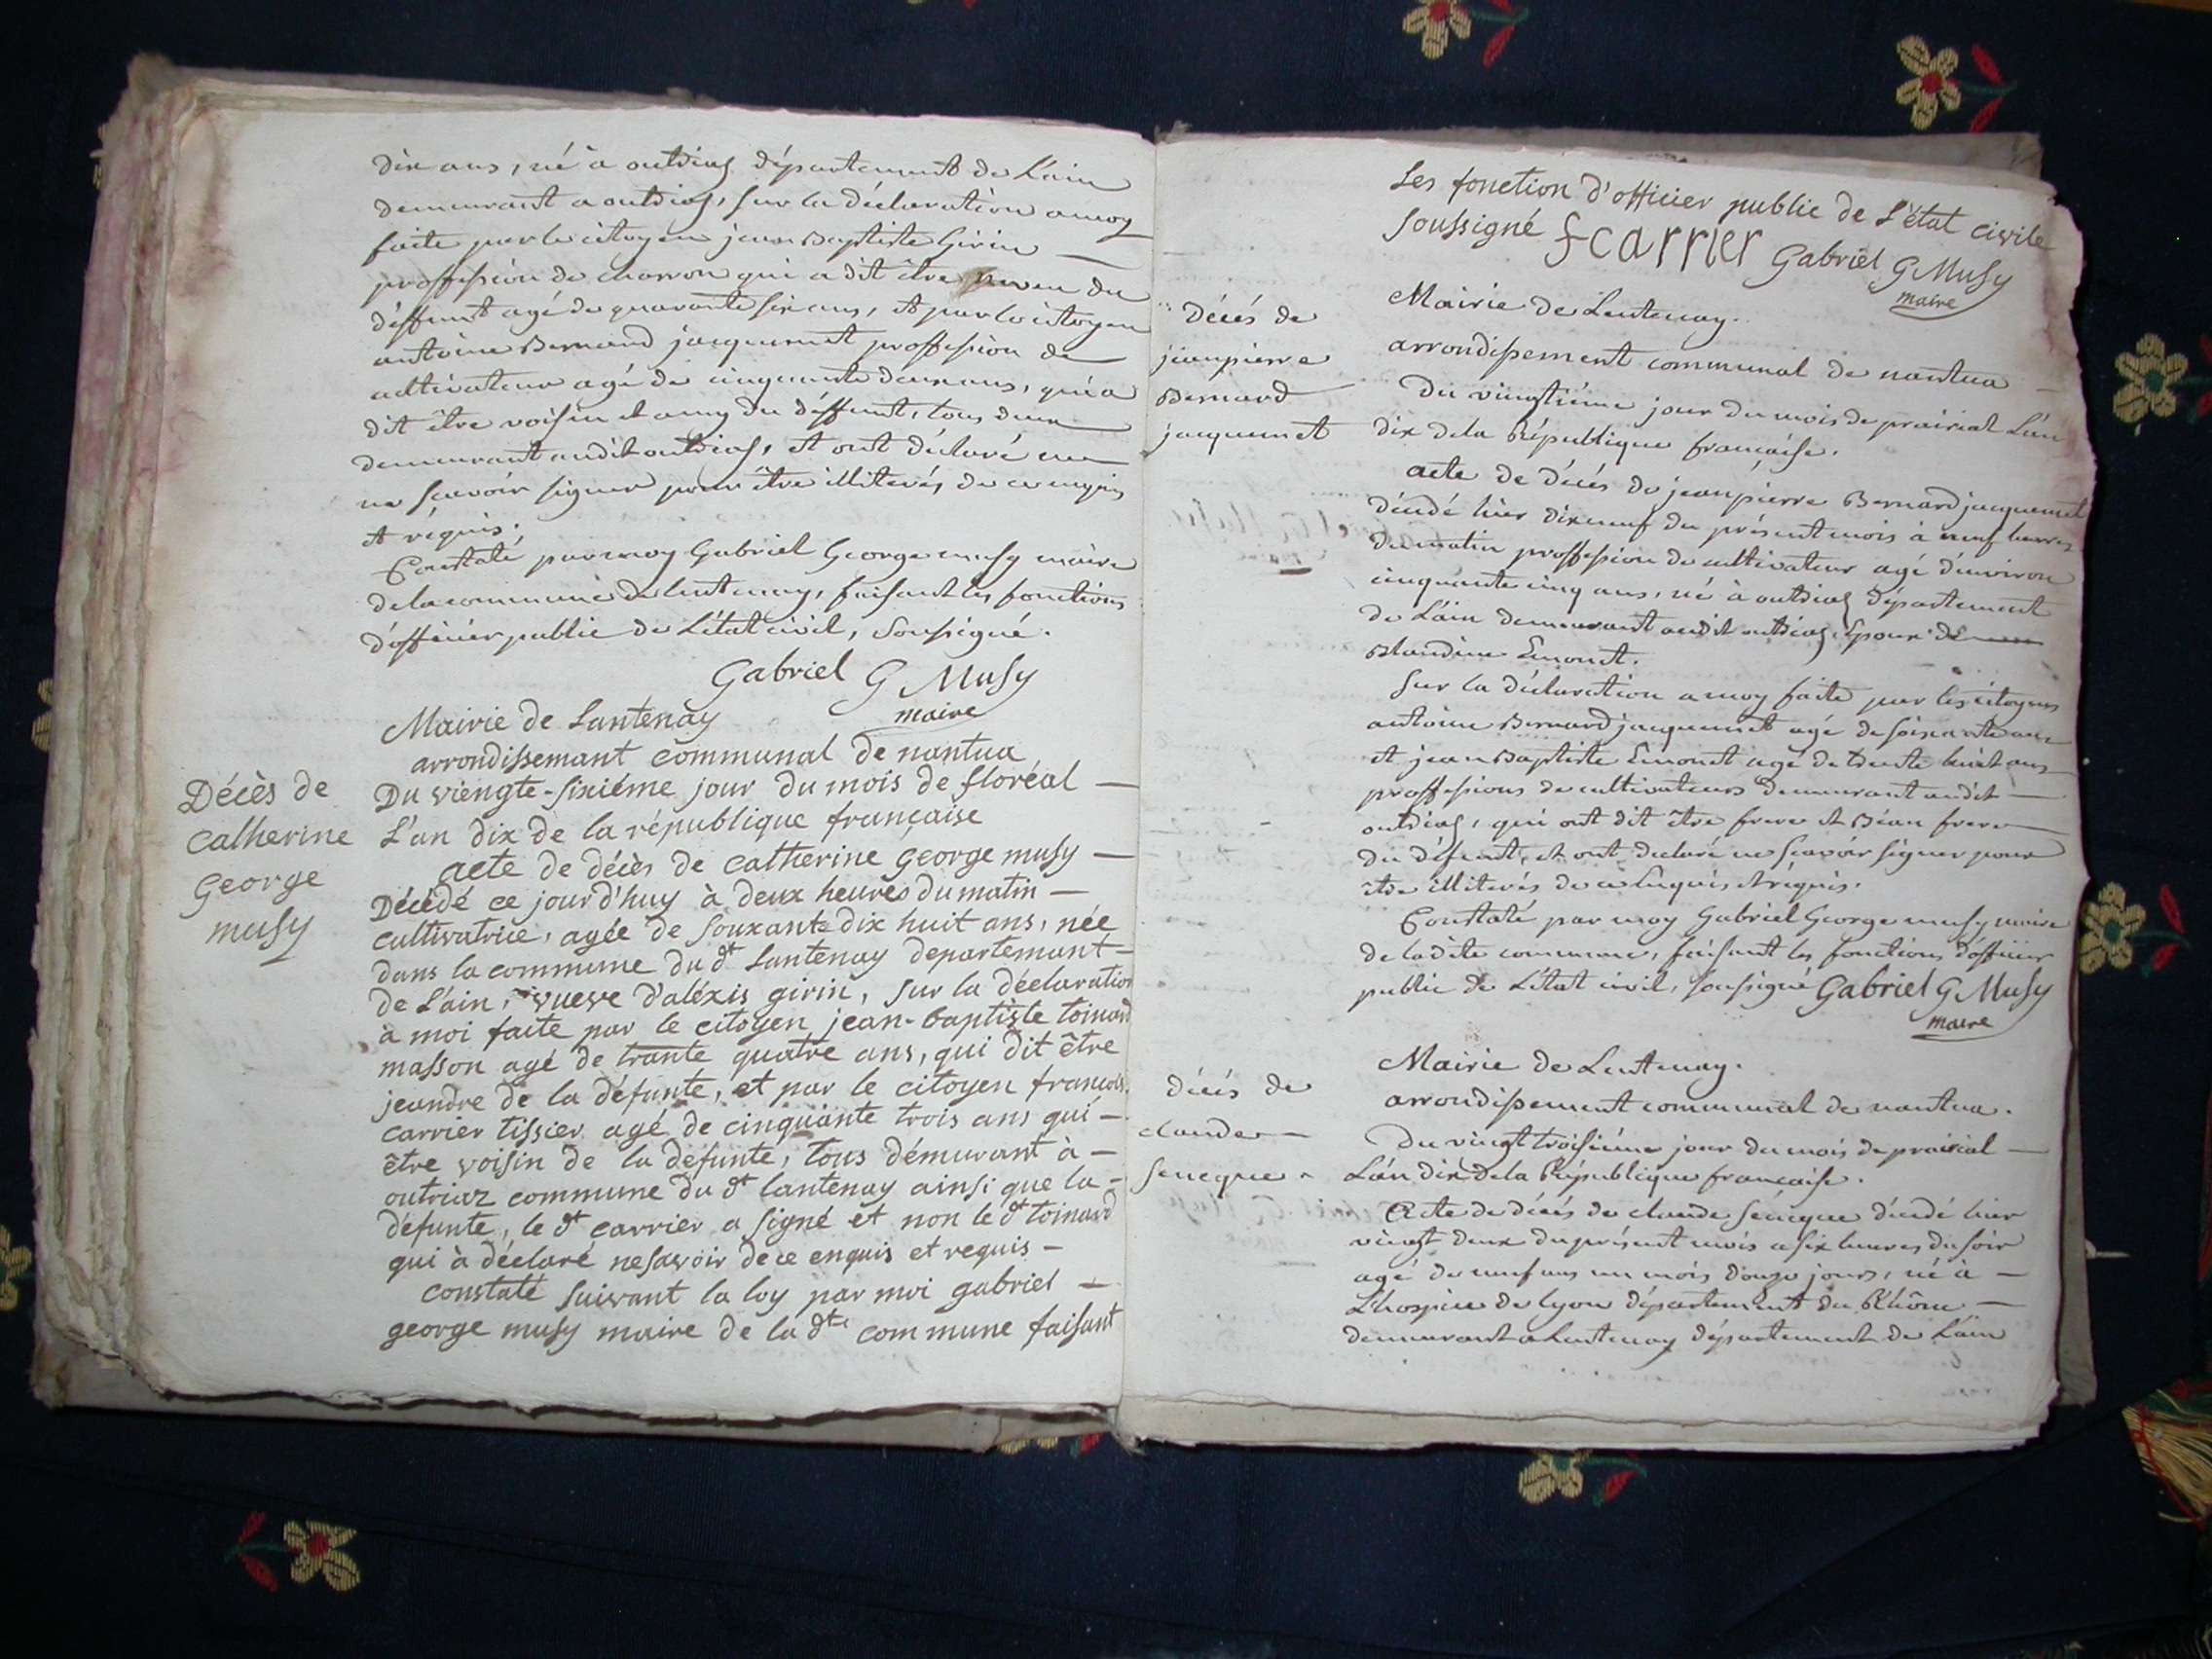 dix ans, né à outriaz département de L'ain
demeurant a outriaz, sur la déclaration a moy
faite par le citoyen jean Baptiste Girin
proffession de charron qui a dit être neveu du
déffunt agé de quarante six ans, et par le citoyen
antoine Bernard jacquemet proffession de
cultivateur agé de cinquante deux ans, qui a
dit être voisin et amy du déffunt, tous deux
demeurant audit outriaz, et ont déclaré
ne scavoir signer pour être illiterés de ce enquis
et réquis.
Constaté par moy Gabriel George musy maire
de la commune de lentenay, faisant les fonctions
d'officier public de L'état civil, soussigné.
Gabriel G Musy
maire
Mairie de Lantenay
arrondissemant communal de nantua
Décès de
Catherine
George
musy
Du viengte-sixiéme jour du mois de floréal —
L'an dix de la république française
acte de décès de catherine george musy —
Décédé ce jourd'huy à deux heures du matin —
cultivatrice, agée de souxante dix huit ans, née
dans la commune du dt Lantenay departemant —
de L'ain, vueve d'aléxis girin, sur la déclaration
à moi faite par le citoyen jean-baptiste toinard
masson agé de trante quatre ans, qui dit être
jeandre de la défunte, et par le citoyen francois
carrier tissier agé de cinquante trois ans qui —
être voisin de la défunte, tous démurant à —
outriaz commune du dt lantenay ainsi que la —
défunte, le dt carrier a signé et non le dt toinard
qui à déclaré ne savoir de ce enquis et requis —
constaté suivant la loy par moi gabriel —
george musy maire de la dte commune faisant
Les fonction d'officier public de L'état civile
soussigné fcarrier Gabriel G Musy
maire
Mairie de Lentenay.
arrondissement communal de nantua —
décés de
jeanpierre
Bernard
jacquemet
Du vingtiéme jour du mois de prairial L'an
dix de la République française.
acte de décés de jeanpierre Bernard jacquemet
décédé hier dixneuf du présent mois à neuf heures
du matin proffession de cultivateur agé d'environ
cinquante cinq ans, né à outriaz département
de L'ain demeurant audit outriaz, Epoux de
Blandine Emonet.
Sur la déclaration a moy faite par les citoyens
antoine Bernard jacquemet agé de soixante ans
et jean Baptiste Emonet agé de trente huit ans
proffessions de cultivateurs demeurant audit —
outriaz, qui ont dit être frere et Béau frere
du défunt, et ont declaré ne scavoir signer pour
être illiterés de ce Enquis et réquis.
Constaté par moy Gabriel George musy maire
de la dite commune, faisant les fonctions d'officier
public de L'état civil, soussigné Gabriel G Musy
maire
Mairie de Lentenay.
arrondissement communal de nantua.
décés de
claude —
Seneque
Du vingt troisiéme jour du mois de prairial —
L'an dix de la République française.
Acte de décés de claude Séneque décédé hier
vingt deux du présent mois a six heures du soir
agé de neuf ans un mois douze jours, né à —
L'hospice de lyon département du Rhône —
demeurant a Lentenay département de L'ain